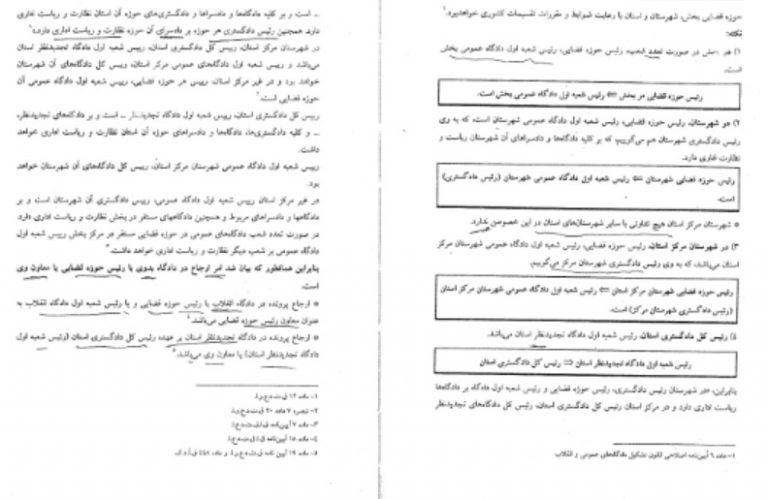 حوزه قضایی بخش، شهرستان و استان با رعایت ضوابط و مقررات تقسیمات کشوری خواهدبود.۱
نکته:
۱) در بخش در صورت تعدد شعب، رئیس حوزه قضایی، رئیس شعبه اول دادگاه عمومی بخش
است.
رئیس حوزه قضایی در بخش ⇐ رئیس شعبه اول دادگاه عمومی بخش است.
۲) در شهرستان، رئیس حوزه قضایی، رئیس شعبه اول دادگاه عمومی شهرستان است، که به وی
رئیس دادگستری شهرستان هم می‌گوییم، که بر کلیه دادگاه‌ها و دادسراهای آن شهرستان ریاست و
نظارت اداری دارد.
رئیس حوزه قضایی شهرستان ⇐ رئیس شعبه اول دادگاه عمومی شهرستان (رئیس دادگستری)
است.
* شهرستان مرکز استان هیچ تفاوتی با سایر شهرستان‌های استان در این خصوص ندارد.
۳) در شهرستان مرکز استان، رئیس حوزه قضایی، رئیس شعبه اول دادگاه عمومی شهرستان مرکز
استان می‌باشد، که به وی رئیس دادگستری شهرستان مرکز می‌گوییم.
رئیس حوزه قضایی شهرستان مرکز استان ⇐ رئیس شعبه اول دادگاه عمومی شهرستان مرکز استان
(رئیس دادگستری شهرستان مرکز) است.
٤) رئیس کل دادگستری استان، رئیس شعبه اول دادگاه تجدیدنظر استان می‌باشد.
رئیس شعبه اول دادگاه تجدیدنظر استان ⇐ رئیس کل دادگستری استان
بنابراین، «در شهرستان رئیس دادگستری، رئیس حوزه قضایی و رئیس شعبه اول دادگاه بر دادگاه‌ها
ریاست اداری دارد و در مرکز استان رئیس کل دادگستری استان، رئیس کل دادگاه‌های تجدیدنظر
۱- ماده ۹ آیین‌نامه اصلاحی قانون تشکیل دادگاه‌های عمومی و انقلاب
... است و بر کلیه دادگاه‌ها و دادسراها و دادگستری‌های حوزه آن استان نظارت و ریاست اداری
دارد. همچنین رئیس دادگستری هر حوزه بر دادسرای آن حوزه نظارت و ریاست اداری دارد.۱
در شهرستان مرکز استان، رییس کل دادگستری استان، رییس شعبه اول دادگاه تجدیدنظر استان
می‌باشد و رییس شعبه اول دادگاه‌های عمومی مرکز استان، رییس کل دادگاه‌های آن شهرستان
خواهد بود و در غیر مرکز استان، رییس هر حوزه قضایی، رییس شعبه اول دادگاه عمومی آن
حوزه قضایی است.۲
رییس کل دادگستری استان، رییس شعبه اول دادگاه تجدیدنظر ... است و بر دادگاه‌های تجدیدنظر،
... و کلیه دادگستری‌ها، دادگاه‌ها و دادسراهای حوزه آن استان نظارت و ریاست اداری خواهد
داشت.
رییس شعبه اول دادگاه عمومی شهرستان مرکز استان، رییس کل دادگاه‌های آن شهرستان خواهد
بود.
در غیر مرکز استان رییس شعبه اول دادگاه عمومی، رییس دادگستری آن شهرستان است و بر
دادگاهها و دادسراهای مربوط و همچنین دادگاههای مستقر در بخش نظارت و ریاست اداری دارد.
در صورت تعدد شعب دادگاه‌های عمومی در حوزه قضایی مستقر در مرکز بخش رییس شعبه اول
دادگاه عمومی بر شعب دیگر نظارت و ریاست اداری خواهد داشت.۳
بنابراین همانطور که بیان شد امر ارجاع در دادگاه بدوی با رئیس حوزه قضایی یا معاون وی
است.
* ارجاع پرونده در دادگاه انقلاب با رئیس حوزه قضایی و یا رئیس شعبه اول دادگاه انقلاب به
عنوان معاون رئیس حوزه قضایی می‌باشد.٤
* ارجاع پرونده در دادگاه تجدیدنظر استان بر عهده رئیس کل دادگستری استان (رئیس شعبه اول
دادگاه تجدیدنظر استان) یا معاون وی می‌باشد.۵
۱- ماده ۱۲
۲- تبصره ۷ ماده ۲۰
۳- ماده ۷ آیین‌نامه
٤- ماده ۱۸ آیین نامه